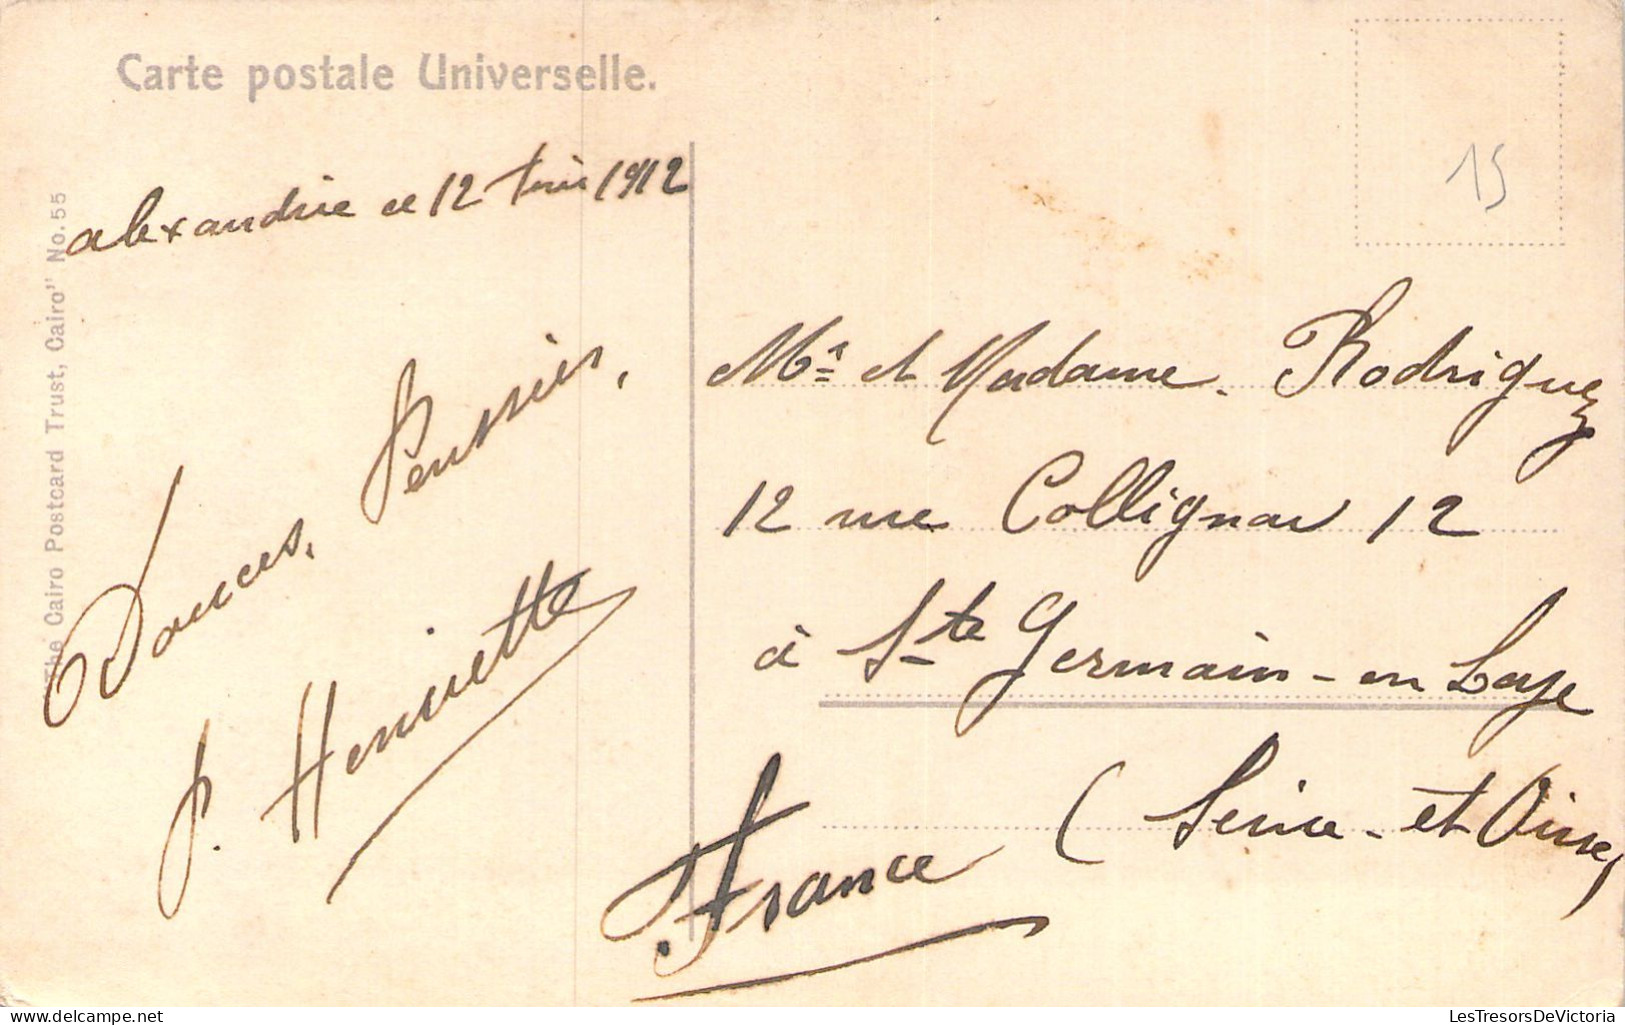 Carte postale Universelle.
"The Cairo Postcard Trust, Cairo" No. 55
15
alexandrie ce 12 1912
Douces, Pensées,
P. Henriette
Mr et Madame. Rodriguez
12 rue Collignon 12
à Ste Germain-en Laye
(Seine-et Oise)
France
LesTresorsDeVictoria
www.delcampe.net